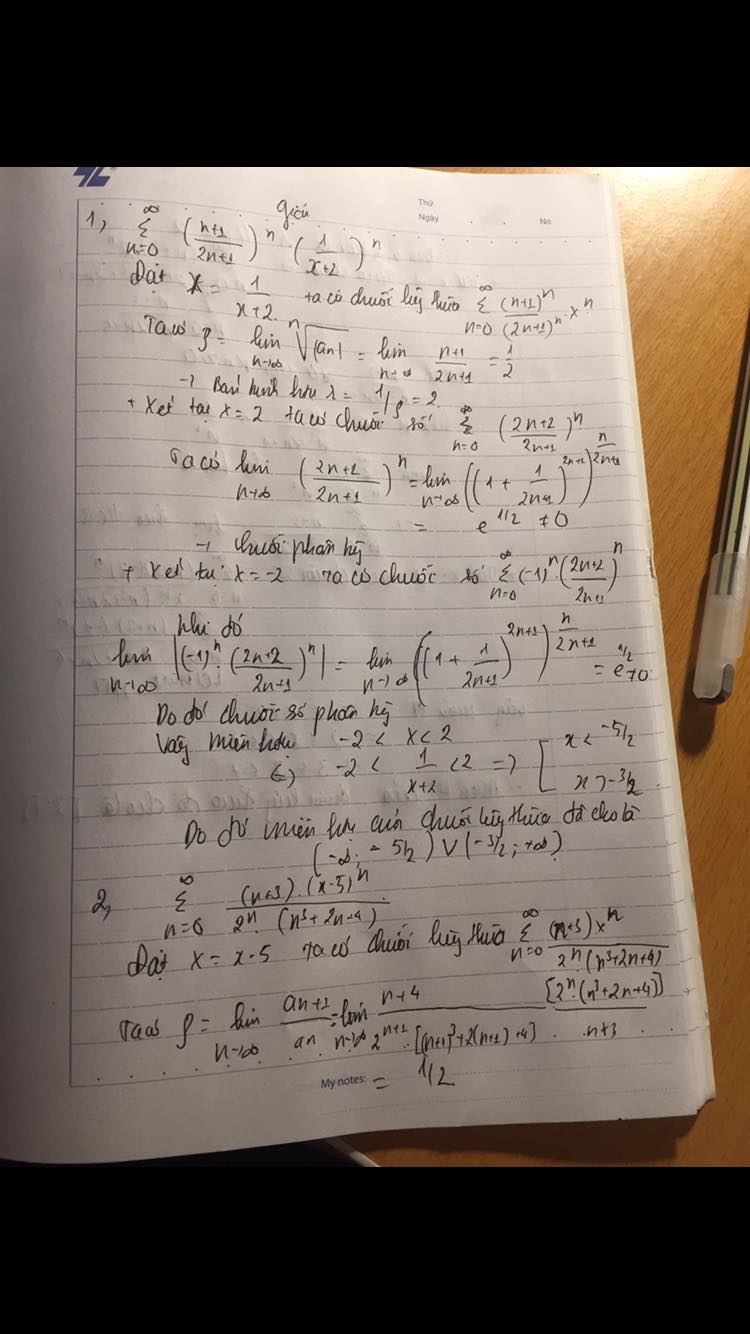 Thứ
Ngày
No.
Giải
1, \sum_{n=0}^{\infty} (\frac{n+1}{2n+1})^n . (\frac{1}{x+2})^n
Đặt X = \frac{1}{x+2} ta có chuỗi lũy thừa \sum_{n=0}^{\infty} \frac{(n+1)^n}{(2n+1)^n} . X^n
Ta có ρ = \lim_{n→∞} \sqrt[n]{|an|} = \lim_{n→∞} \frac{n+1}{2n+1} = \frac{1}{2}
→ Bán kính hội tụ = 1/ρ = 2
+ Xét tại X = 2 ta có chuỗi số \sum_{n=0}^{\infty} (\frac{2n+2}{2n+1})^n
Ta có \lim_{n→∞} (\frac{2n+2}{2n+1})^n = \lim_{n→∞} ((1 + \frac{1}{2n+1})^{2n+1})^{\frac{n}{2n+1}}
= e^{1/2} ≠ 0
→ chuỗi phân kỳ
+ Xét tại X = -2 ta có chuỗi số \sum_{n=0}^{\infty} (-1)^n . (\frac{2n+2}{2n+1})^n
Khi đó
\lim_{n→∞} |(-1)^n . (\frac{2n+2}{2n+1})^n| = \lim_{n→∞} ((1 + \frac{1}{2n+1})^{2n+1})^{\frac{n}{2n+1}} = e^{1/2} ≠ 0
Do đó chuỗi số phân kỳ
Vậy miền hội tụ -2 < X < 2
⇔ -2 < \frac{1}{x+2} < 2 => [ x < -5/2
x > -3/2
Do đó miền hội tụ của chuỗi lũy thừa đã cho là
(-∞; -5/2) ∪ (-3/2; +∞)
2, \sum_{n=0}^{\infty} \frac{(n+3).(x-5)^n}{2^n.(n^3+2n+4)}
Đặt X = x-5 ta có chuỗi lũy thừa \sum_{n=0}^{\infty} \frac{(n+3)X^n}{2^n.(n^3+2n+4)}
Ta có ρ = \lim_{n→∞} \frac{an+1}{an} = \lim_{n→∞} \frac{n+4}{2^{n+1}.[(n+1)^3+2(n+1)+4]} . \frac{[2^n.(n^3+2n+4)]}{n+3}
My notes:
= 1/2